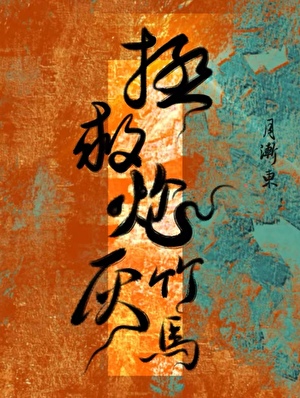 拯救炮灰竹馬
月漸東